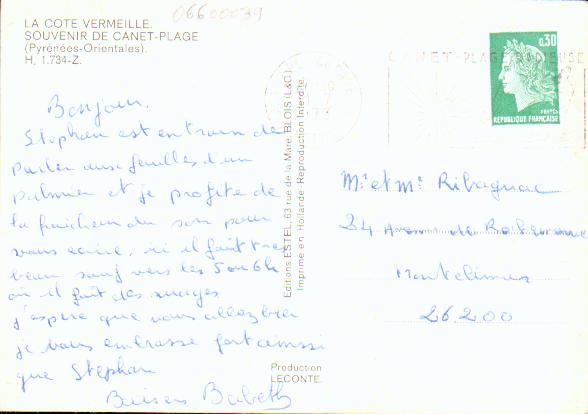 06600039
LA COTE VERMEILLE.
SOUVENIR DE CANET-PLAGE
(Pyrénées-Orientales).
H. 1.734-Z.
Bonjour.
Stephan est en train de
parler aux feuilles d'un
palmier et je profite de
la fraicheur du soir pour
vous écrire, ici il fait très
beau sauf vers les 5 ou 6h
où il fait des nuages
j'espère que vous allez bien
je vous embrasse fort ainsi
que Stephan
Baisers Babeth
Editions ESTEL, 63 rue de la Mare, BLOIS (L&C)
Imprimé en Hollande Reproduction Interdite.
Production
LECONTE.
CANET-PLAGE RADIEUSE
0,30
POSTES
REPUBLIQUE FRANÇAISE
Mr et Me Ribagnac
24 Avenue de
Montelimar
26200